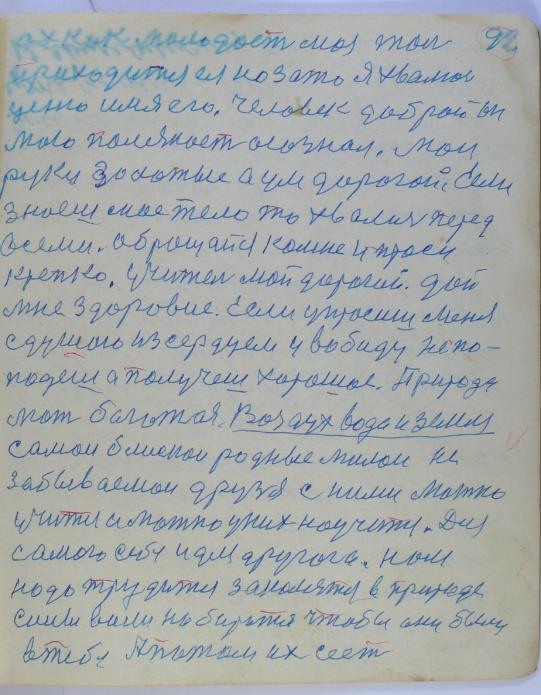 92
ях как молодост моя там
приходится ея но зато я хвалю
цело имя его. Человек доброй он
мою полезност осознал. Мои
руки золотые а ум дорогой. Если
знаеш мое тело то хвалис перед
всеми. обращайся комне и проси
крепко. Учител мой дорогий. дай
мне здоровие. Если упросиш меня
сдушою изсердцем и вобиду непо-
подеш а получеш хорошое. Природа
мат богатая. Воздух вода и земля
самаи блискаи родные милаи не
забываемаи друзя с ними можно
учится и можно уних научится. Для
самого себе и для другога. нам
надо трудится заниматся в природе
силы воли набиратся чтобы они были
втебе Апотом их сест